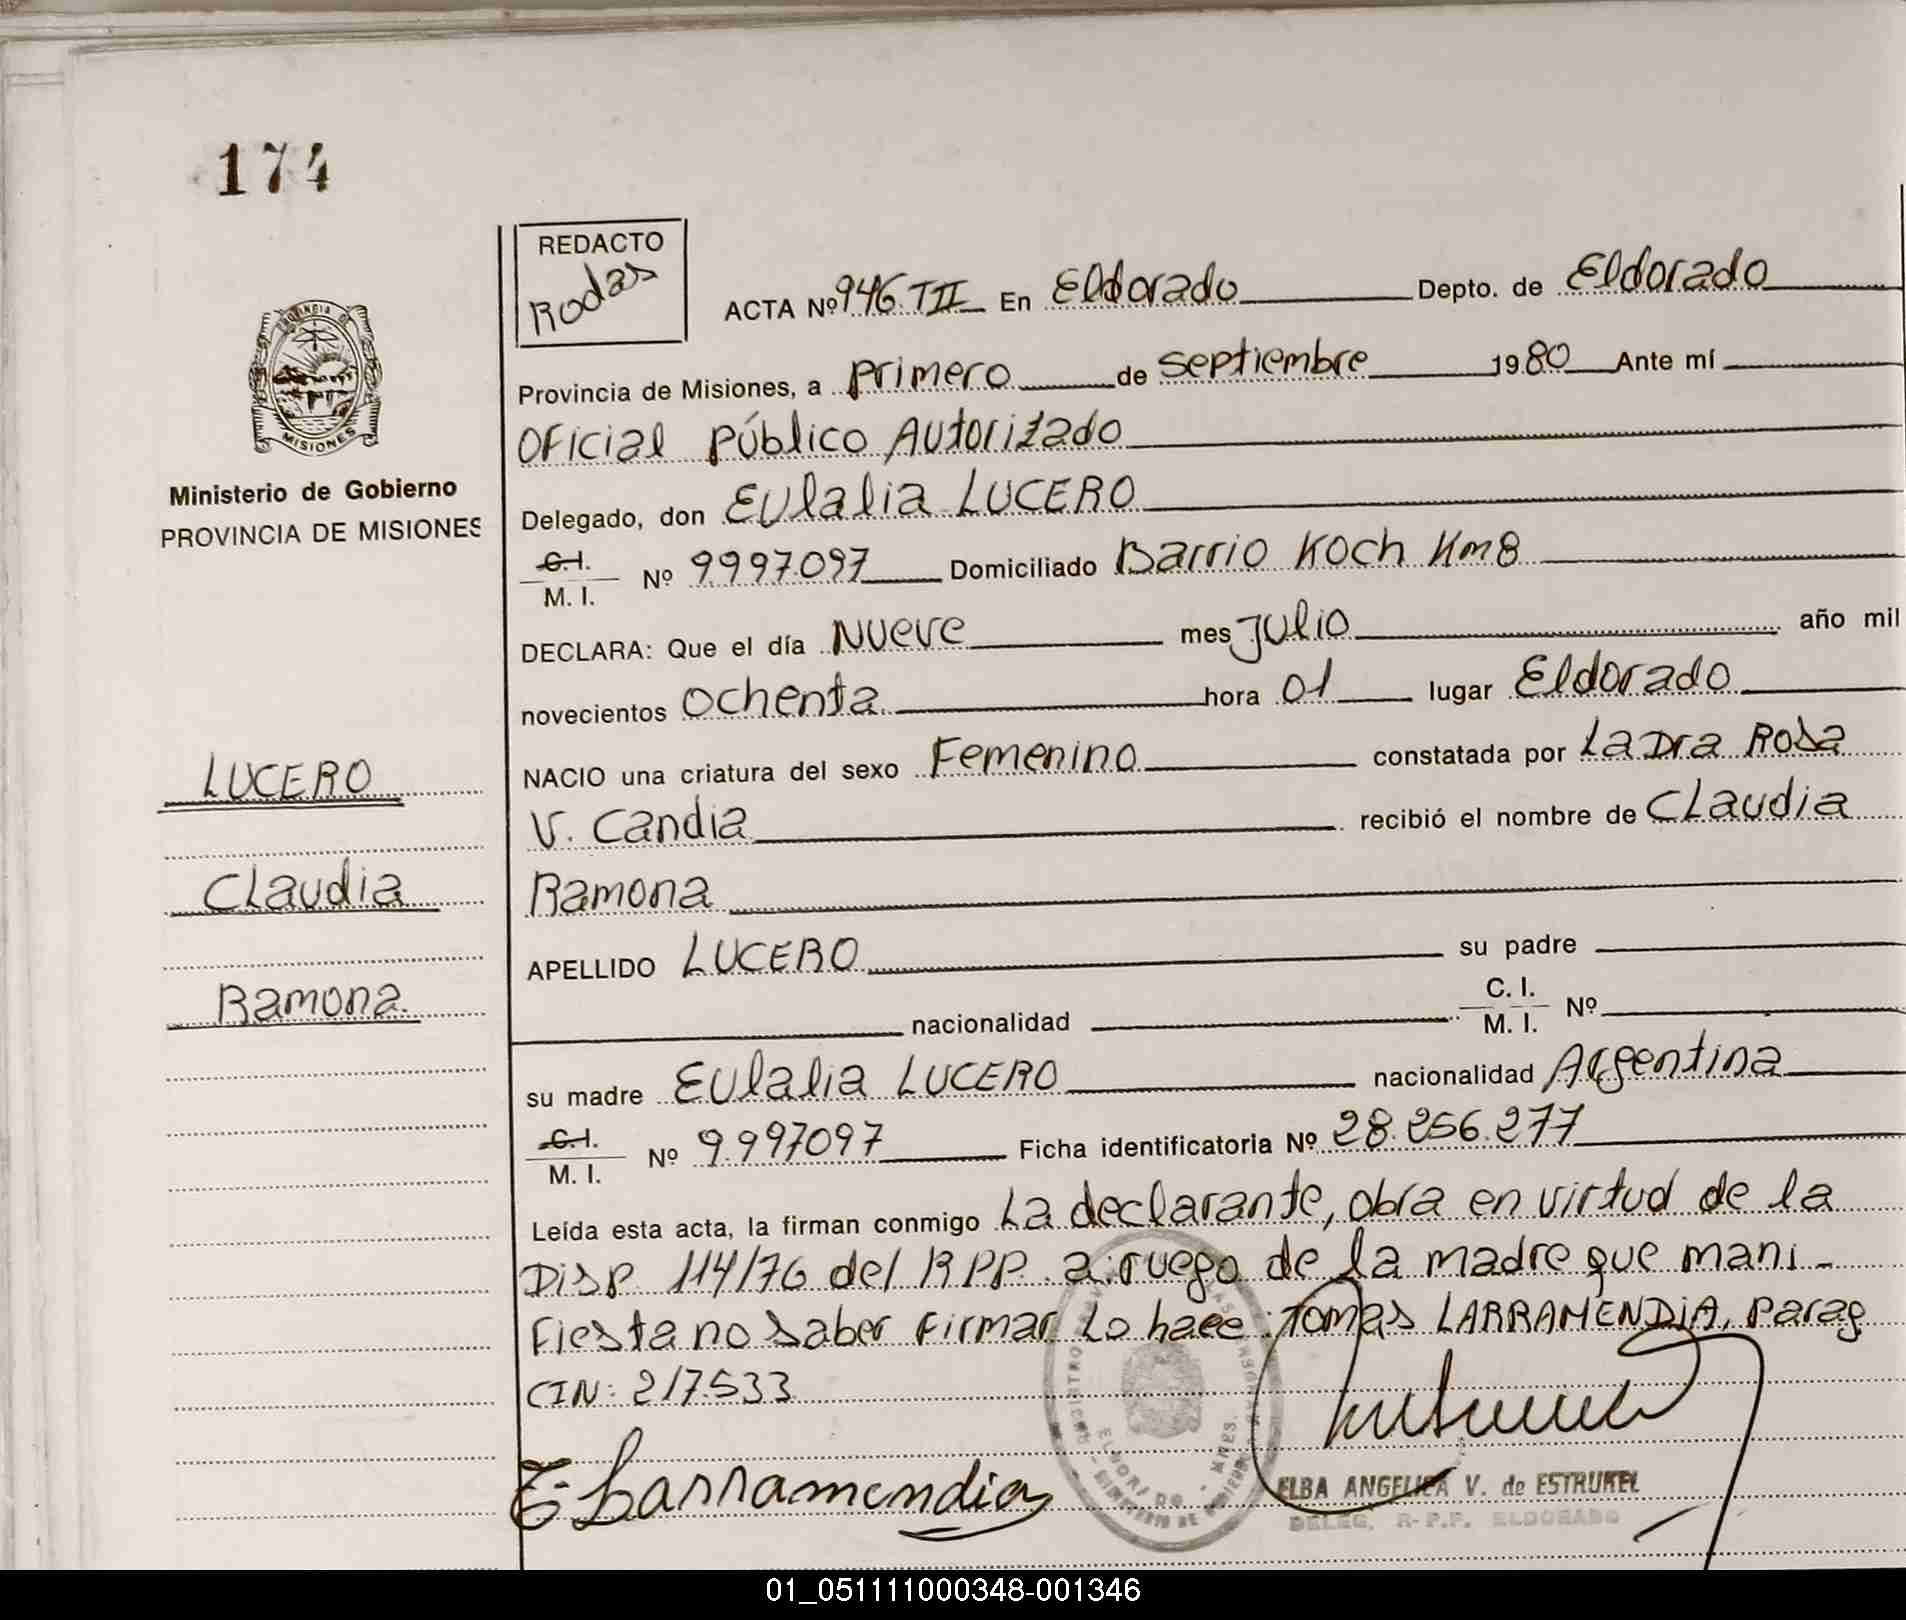 174
REDACTO
Rodas
ACTA Nº 946 TII En Eldorado Depto. de Eldorado
Provincia de Misiones, a primero de septiembre 1980 Ante mí
Oficial Público Autorizado
Delegado, don Eulalia LUCERO
C.I. M. I. Nº 9997097 Domiciliado Barrio Koch Km8
DECLARA: Que el día Nueve mes Julio año mil
novecientos ochenta hora 01 lugar Eldorado
NACIO una criatura del sexo Femenino constatada por La Dra Rosa
V. Candia recibió el nombre de Claudia
Ramona
APELLIDO LUCERO su padre
nacionalidad C. I. M. I. Nº
su madre Eulalia LUCERO nacionalidad Argentina
C.I. M. I. Nº 9.997097 Ficha identificatoria Nº 28.256.277
Leída esta acta, la firman conmigo La declarante, obra en virtud de la
Disp. 114/76 del RPP. a ruego de la madre que mani-
fiesta no saber firmar Lo hace: Tomas LARRAMENDIA, Parag
CIN: 217.533
T. Larramendia
ELBA ANGELICA V. de ESTRUKEL
DELEG. R-P.P. ELDORADO
PROVINCIA DE
MISIONES
Ministerio de Gobierno
PROVINCIA DE MISIONES
LUCERO
Claudia
Ramona.
01_051111000348-001346